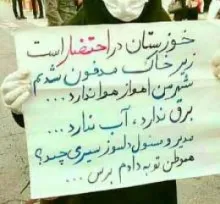 خوزستان در احتضار است
زیر خاک مدفون شدیم
شهر من اهواز هوا ندارد ...
برق ندارد ، آب ندارد ...
مدیر و مسئول دلسوز سیری چند؟
هموطن تو به دادم برس ...